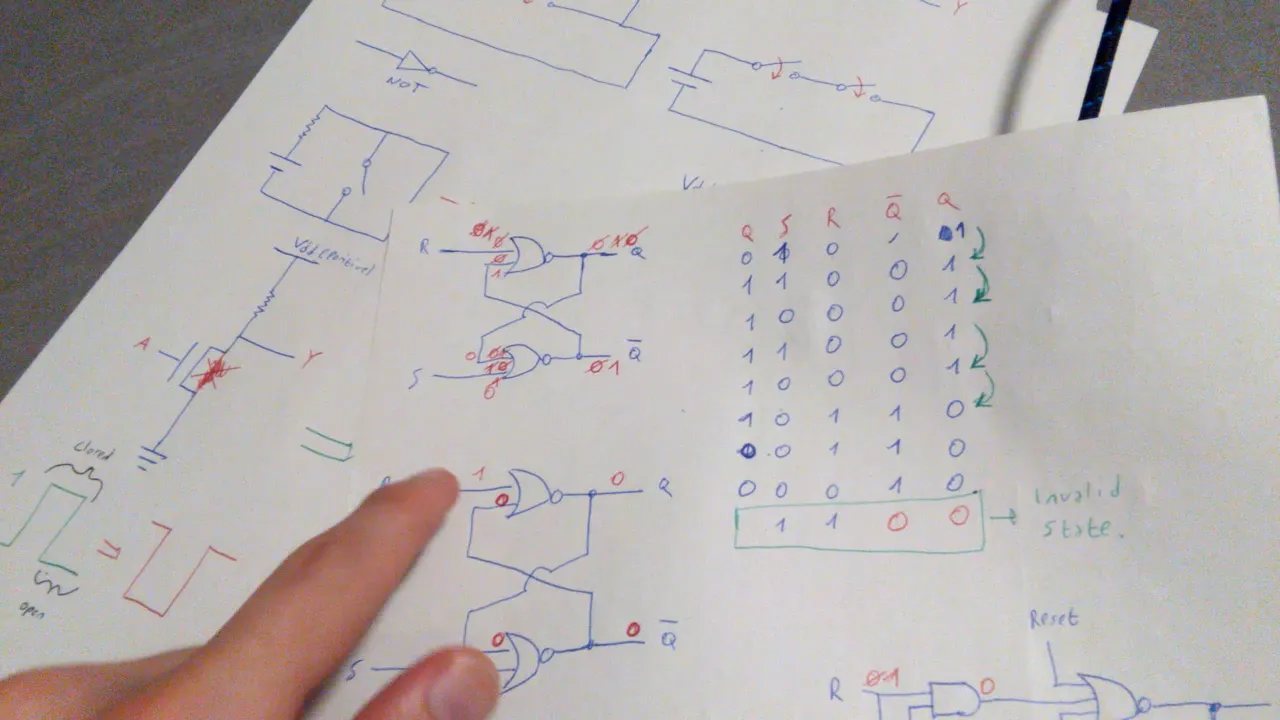 Y
NOT
Vdd (positive)
A
Y
closed
1
open
R
Q
S
Q̅
1
0
0
Q
0
0
Q̅
S
Q S R Q̅ Q
0 1 0 1
1 1 0 0 1
1 0 0 0 1
1 1 0 0 1
1 0 0 0 1
1 0 1 1 0
0 0 1 1 0
0 0 0 1 0
1 1 0 0
Invalid
state.
Reset
R 0 1
0